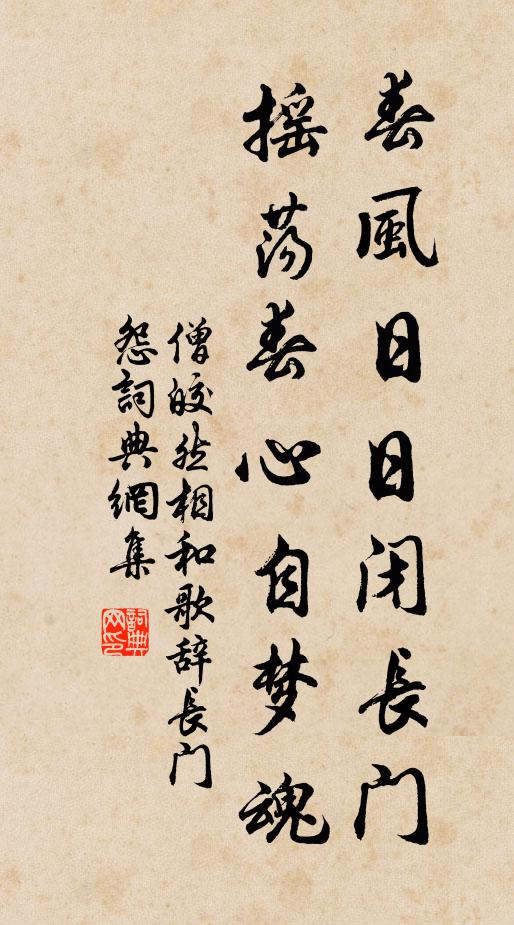 春風日日闭長门
摇荡春心自梦魂
僧皎然相和歌辞長门
怨詞典網集
詞典网印